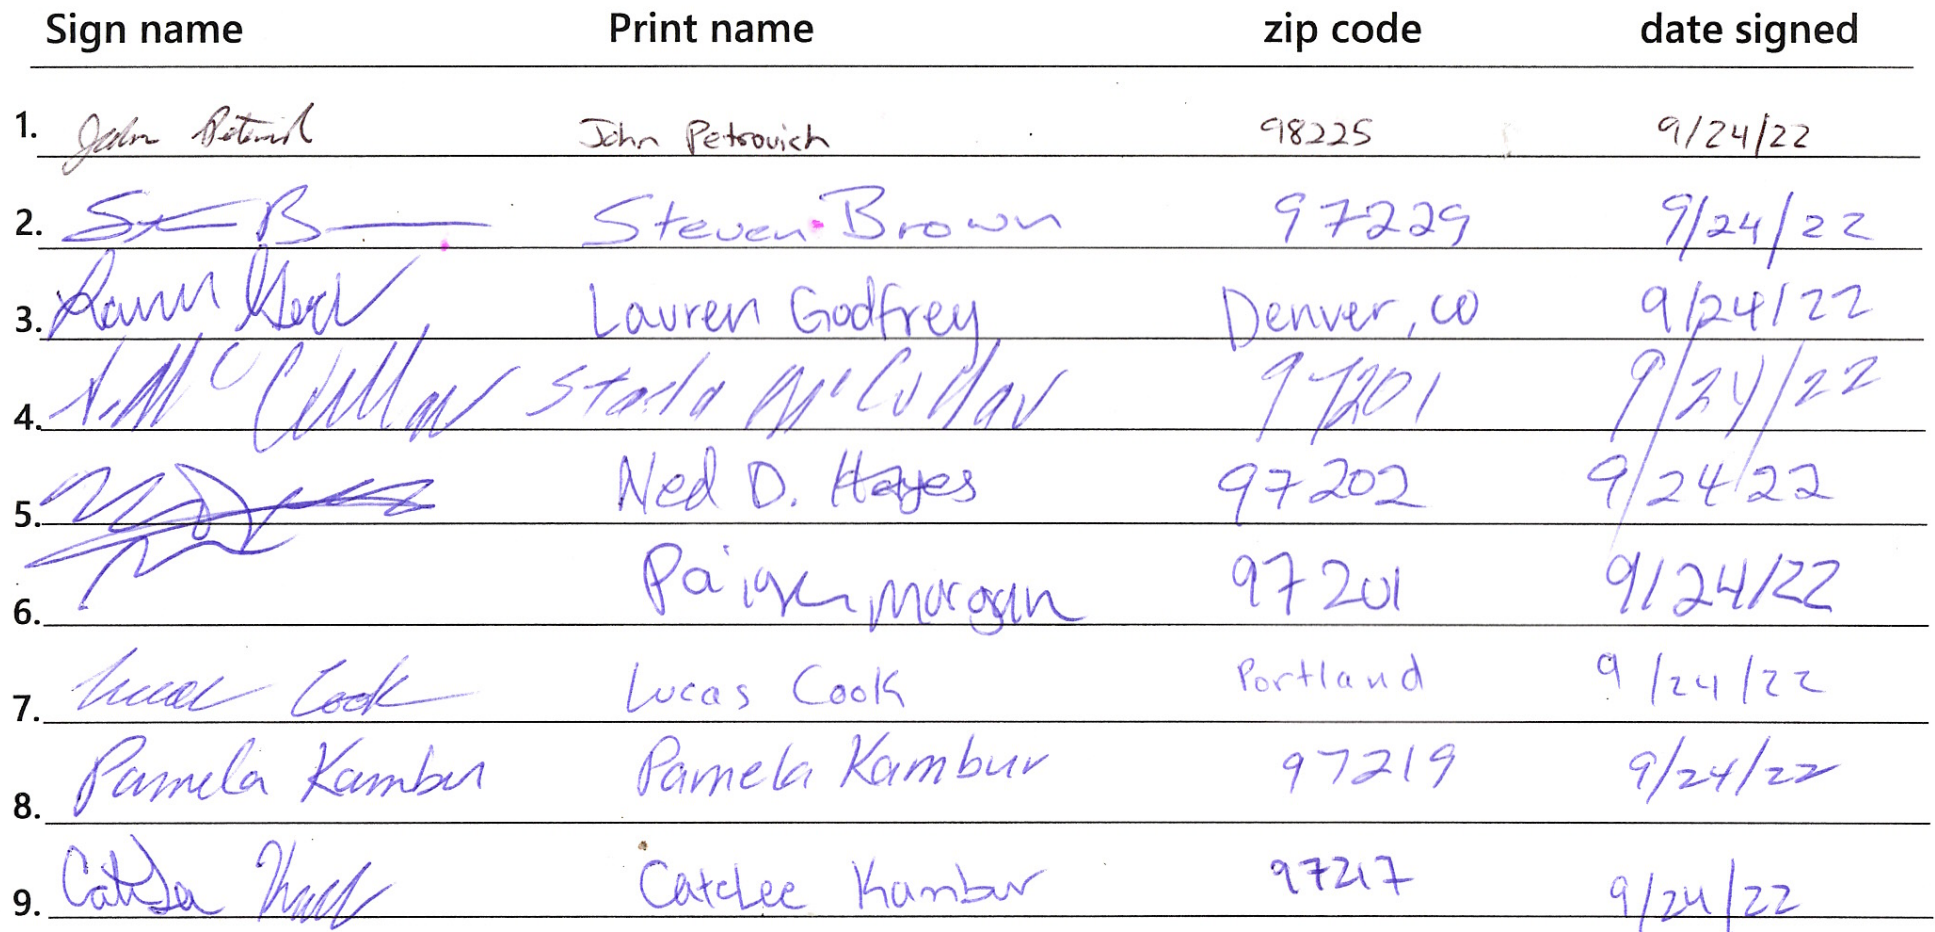 Sign name Print name zip code date signed
1. John Petrovich John Petrovich 98225 9/24/22
2. Steven Brown 97229 9/24/22
3. Lauren Godfrey Denver, CO 9/24/22
4. S. McCullar Starla McCullar 97201 9/24/22
5. Ned D. Hayes 97202 9/24/22
6. Paige Morgan 97201 9/24/22
7. Lucas Cook Lucas Cook Portland 9/24/22
8. Pamela Kambur Pamela Kambur 97219 9/24/22
9. Kambur 97217 9/24/22